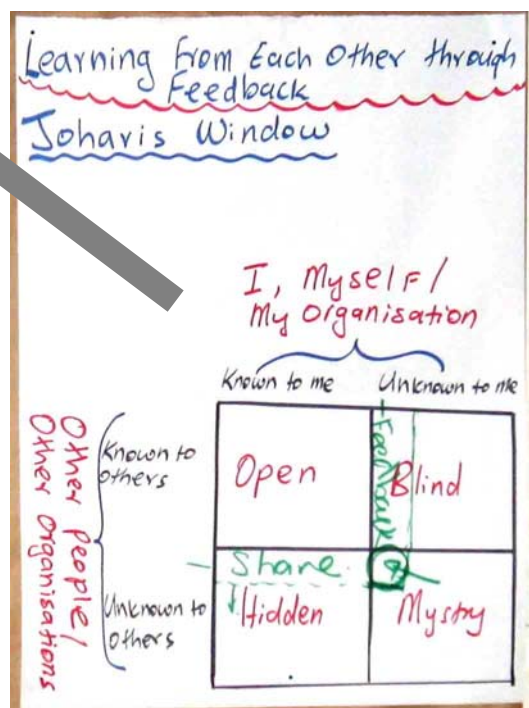 Learning From Each Other through
Feedback
Joharis Window
I, Myself/
My Organisation
Known to me
Unknown to me
Other people/
Other Organisations
Known to
others
Open
Feedback
Blind
Share
Unknown to
others
Hidden
Mystry